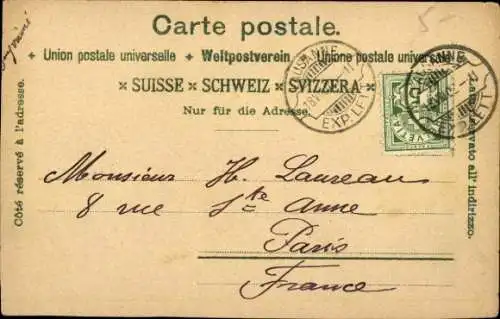 Carte postale.
+ Union postale universelle + Weltpostverein + Unione postale universale +
× SUISSE × SCHWEIZ × SVIZZERA ×
Nur für die Adresse
Côté réservé à l'adresse.
all' indirizzo.
Imprimé
5-
LAUSANNE
EXP. LETT
LAUSANNE
EXP. LETT
HELVETIA
5
Monsieur H. Laureau
8 rue Ste Anne
Paris
France